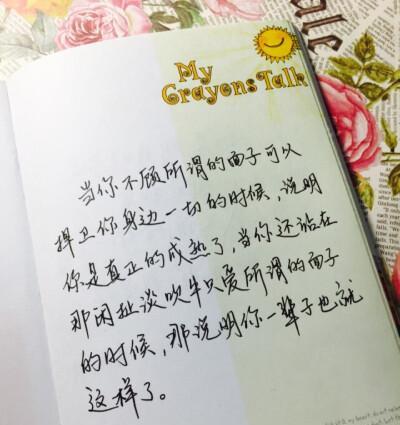 My
Crayons Talk
当你不顾所谓的面子可以
捍卫你身边一切的时候，说明
你是真正的成熟了，当你还站在
那闲扯谈吹牛只爱所谓的面子
的时候，那说明你一辈子也就
这样了。